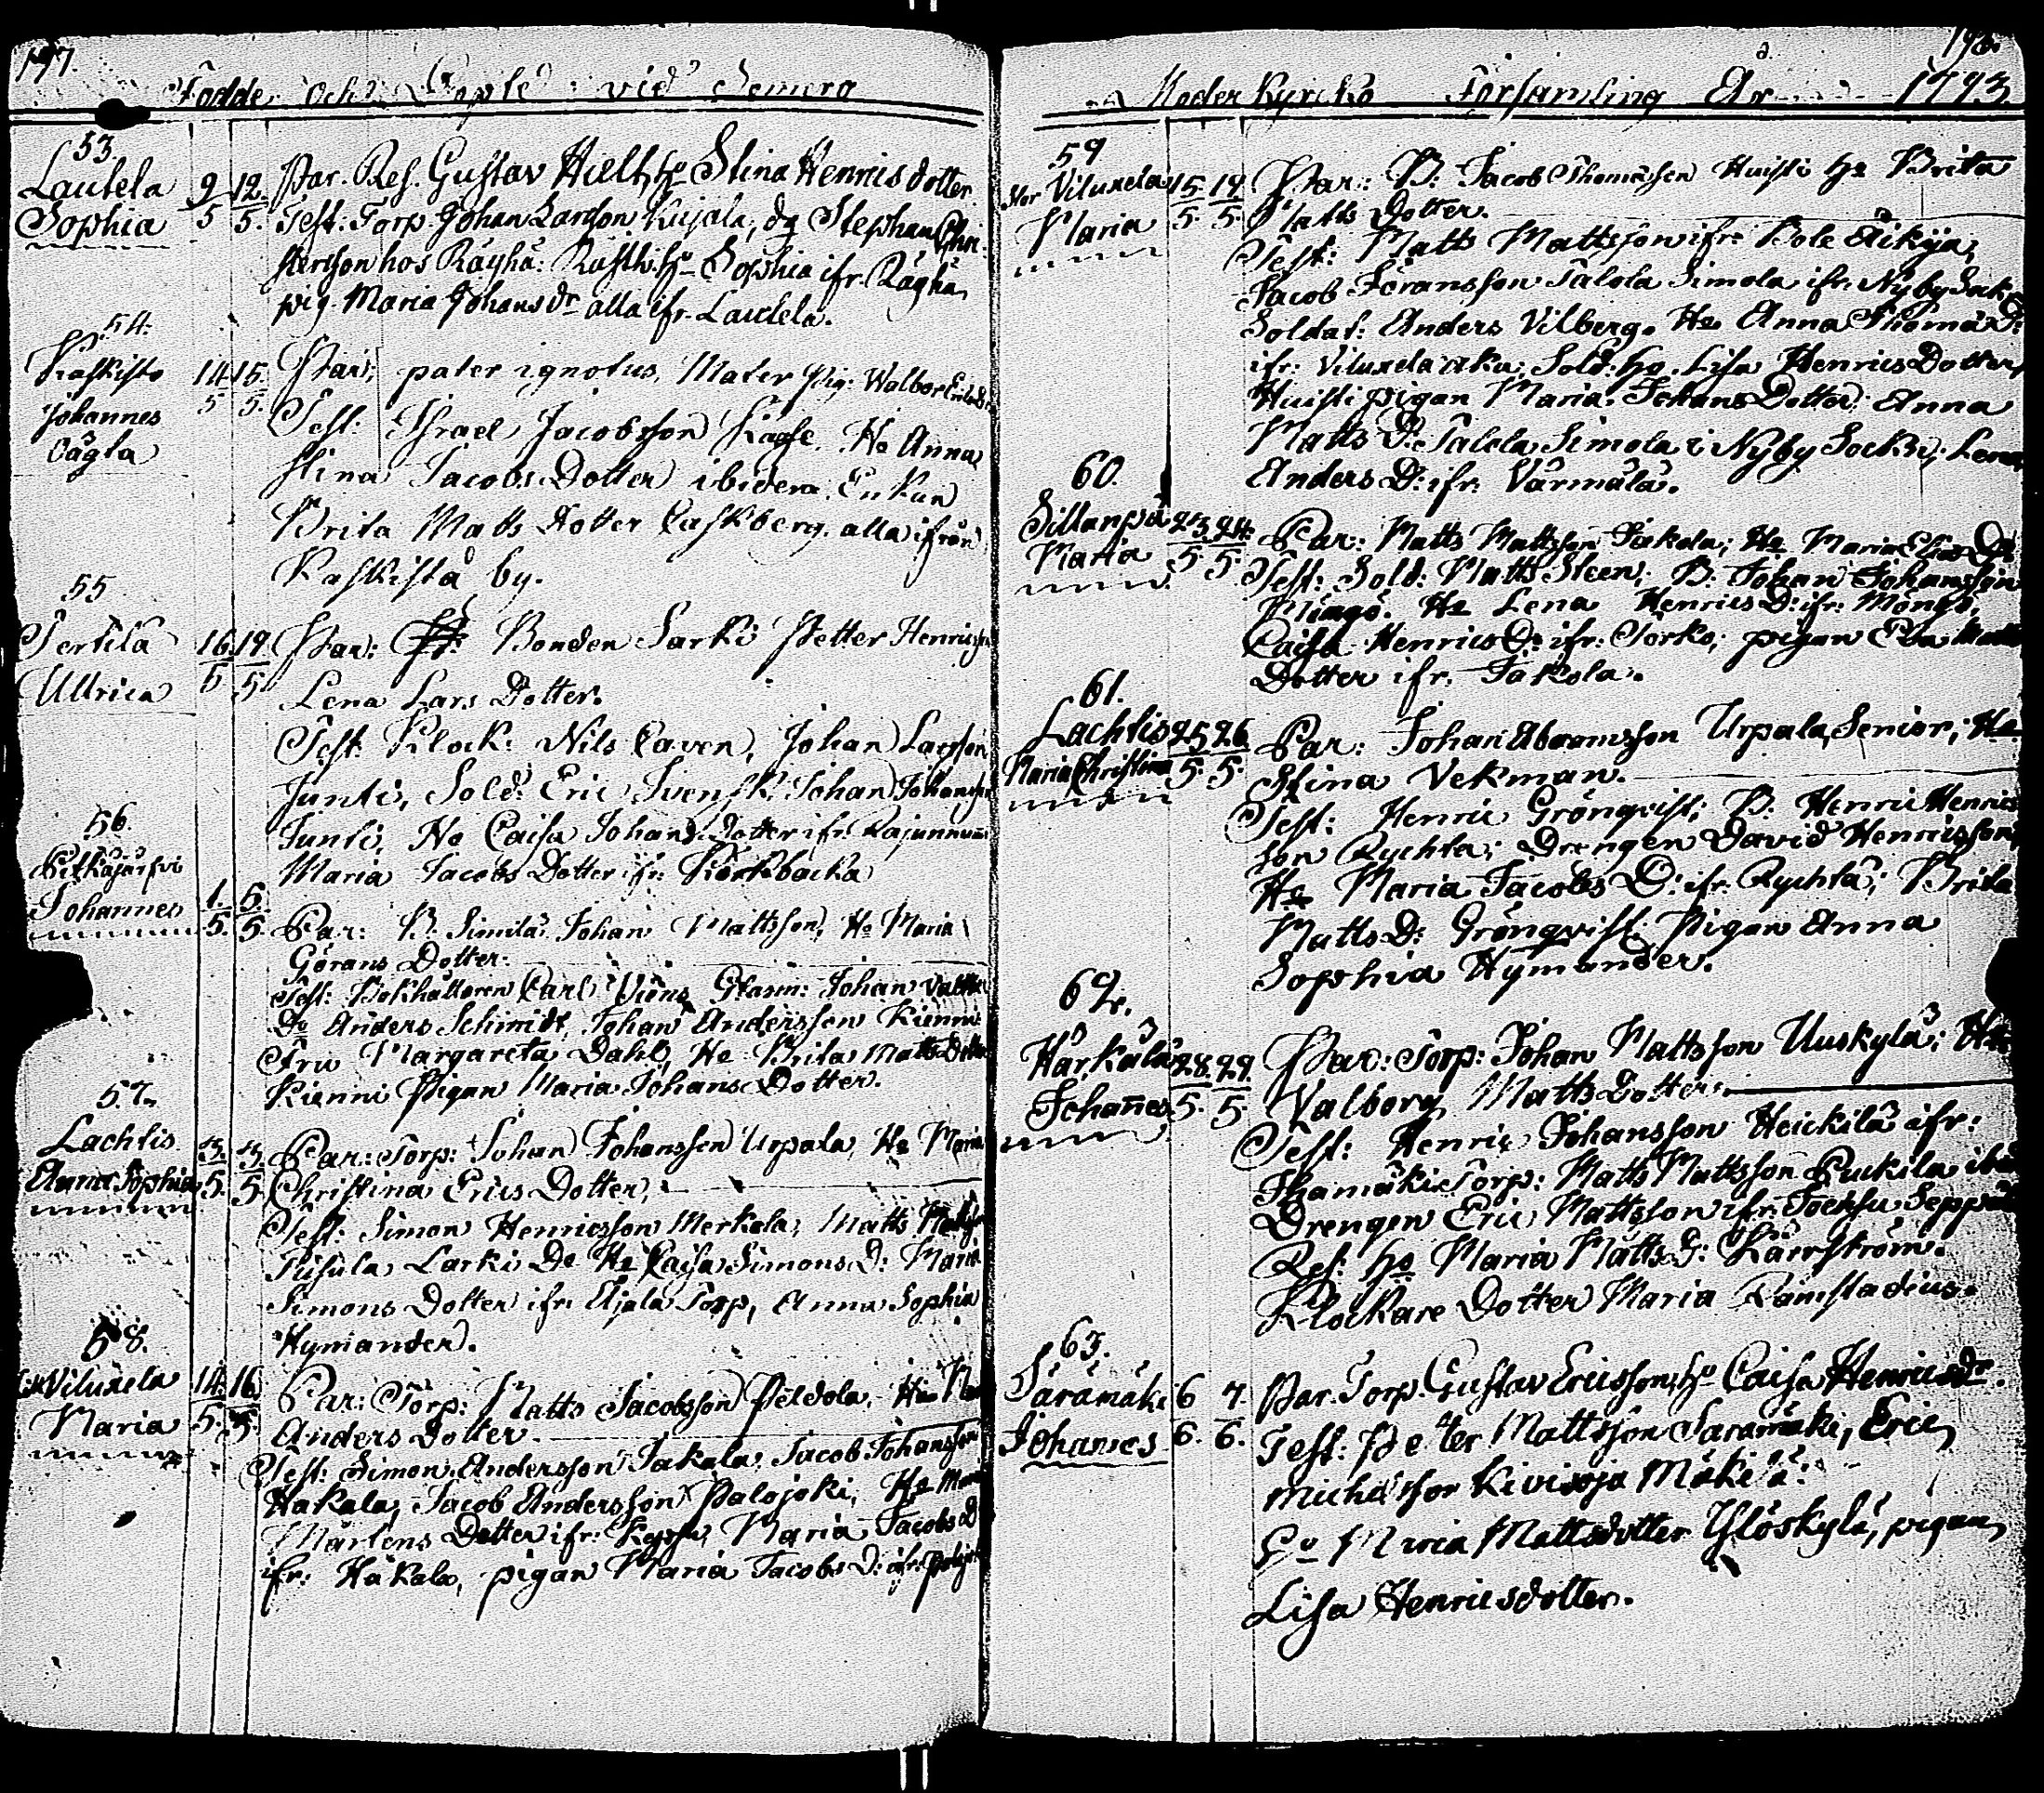 197.
Födde och Döpte vid Somero
53.
Lautela
Sophia
9 12.
5 5.
Par. Res. Gustav Hielt, ho Stina Henrics dotter.
Test: Torp. Johan Larsson Kujala, dg Stephan
hos Räyhä: Rusth. ho Sophia ifr. Räyhä,
pig. Maria Johans dr alla ifr. Lautela.
54.
Kaskisto
Johannes
oägta
14 15.
5 5.
Par: pater ignotus, Mater Pig: Walbor
Test: Israel Jacobsson Ho Anna
Stina Jacobs Dotter ibidem. Enkan
Brita Matts Dotter Caskberg. alla ifrån
Kaskista by.
55
Pertila
Ullrica
16. 19.
5 5.
Par: Bonden Sarki Petter Henricsson
Lena Lars Dotter.
Test: Klock: Nils Caven, Johan Larsson
Junti, Sold: Eric Svensk. Johan Johansson
Junti, Ho Caisa Johans Dotter ifr.
Maria Jacobs Dotter ifr: Körkbacka
56.
Pitkäjärfvi
Johannes
1. 5.
5. 5.
Par: B. Simila Johan Mattsson, Ho Maria
Görans Dotter.
Test: Bokhållaren Carl Johan
Do Anders Schmidt, Johan Andersson Kiemi
Fru Margareta Dahl, Ho Brita Matts Dotter
Kienni Pigan Maria Johans Dotter.
57.
Lachtis
Anna Sophia
3. 3.
5. 5.
Par: Torp: Johan Johansson Urpala, Ho Maria
Christina Erics Dotter,
Test: Simon Henricsson Merkola, Matts
Larki Do Ho Caisa Simons D: Maria
Simons Dotter ifr. Torp, Anna Sophia
Hymander.
58.
Viluxela
Maria
14. 16.
5. 5.
Par: Torp: Matts Jacobsson Peldola, Ho
Anders Dotter.
Test: Simon Andersson Jakala, Jacob Johansson
Hakala, Jacob Andersson Palojoki, Ho
Mårtens Dotter ifr: Maria Jacobs D
ifr: Håkala, pigan Maria Jacobs D: ifr:
198.
Moder Kyrcko Församling År 1793.
59
Stor Viluxela
Maria
15. 19.
5. 5.
Par: B: Jacob Thomasson Huisti ho Brita
Matts Dotter.
Test: Matts Mattsson ifr: Bole Äikija,
Jacob Jöransson Talola Simola ifr. Nyby Sock
Soldat: Anders Vilberg. Ho Anna Thoma D:
ifr: Viluxela Sold: ho Lisa Henrics Dotter,
Huisti pigan Maria Johans Dotter: Anna
Matts D: Talola Simola i Nyby Sockn; Lena
Anders D: ifr: Värmälä.
60.
Sillanpä
Maria
23. 24.
5. 5.
Par: Matts Mattsson Jakola; Ho Maria Elias
Test: Sold: Matts Steen; B: Johan Johansson
Ho Lena Henrics D: ifr:
Caisa Henrics D: ifr: Torko; pigan Eva
Dotter ifr. Jakola.
61.
Lachtis
Maria Christina
25. 26
5. 5.
Par: Johan Abramsson Urpala, Senior; Ho
Stina Vekman.
Test: Henric Grönqvist; B: Henric Henrics
son Rychta; Drengen David Henricsson,
Ho Maria Jacobs D: ifr. Rychta; Brita
Matts D: Grönqvist; Pigan Anna
Sophia Hymander.
62.
Härkälä
Johannes
28. 29.
5. 5.
Par: Torp: Johan Mattsson Uuskylä; Ho
Valborg Matts Dotter.
Test: Henric Johansson Heickilä ifr:
Torp: Matts Mattsson Puckila
Drengen Eric Mattsson ifr:
Res: ho Maria Matts D: Kärrström.
Klockare Dotter Maria Ramstadius.
63.
Särämäki
Johannes
6 7.
6. 6.
Par. Torp. Gustav Ericsson, ho Caisa Henricsdr.
Test: Petter Mattsson Saramäki, Eric
Michelsson Kivioja Mäkilä:
ho Maria Mattsdotter Ylöskylä, pigan
Lisa Henricsdotter.